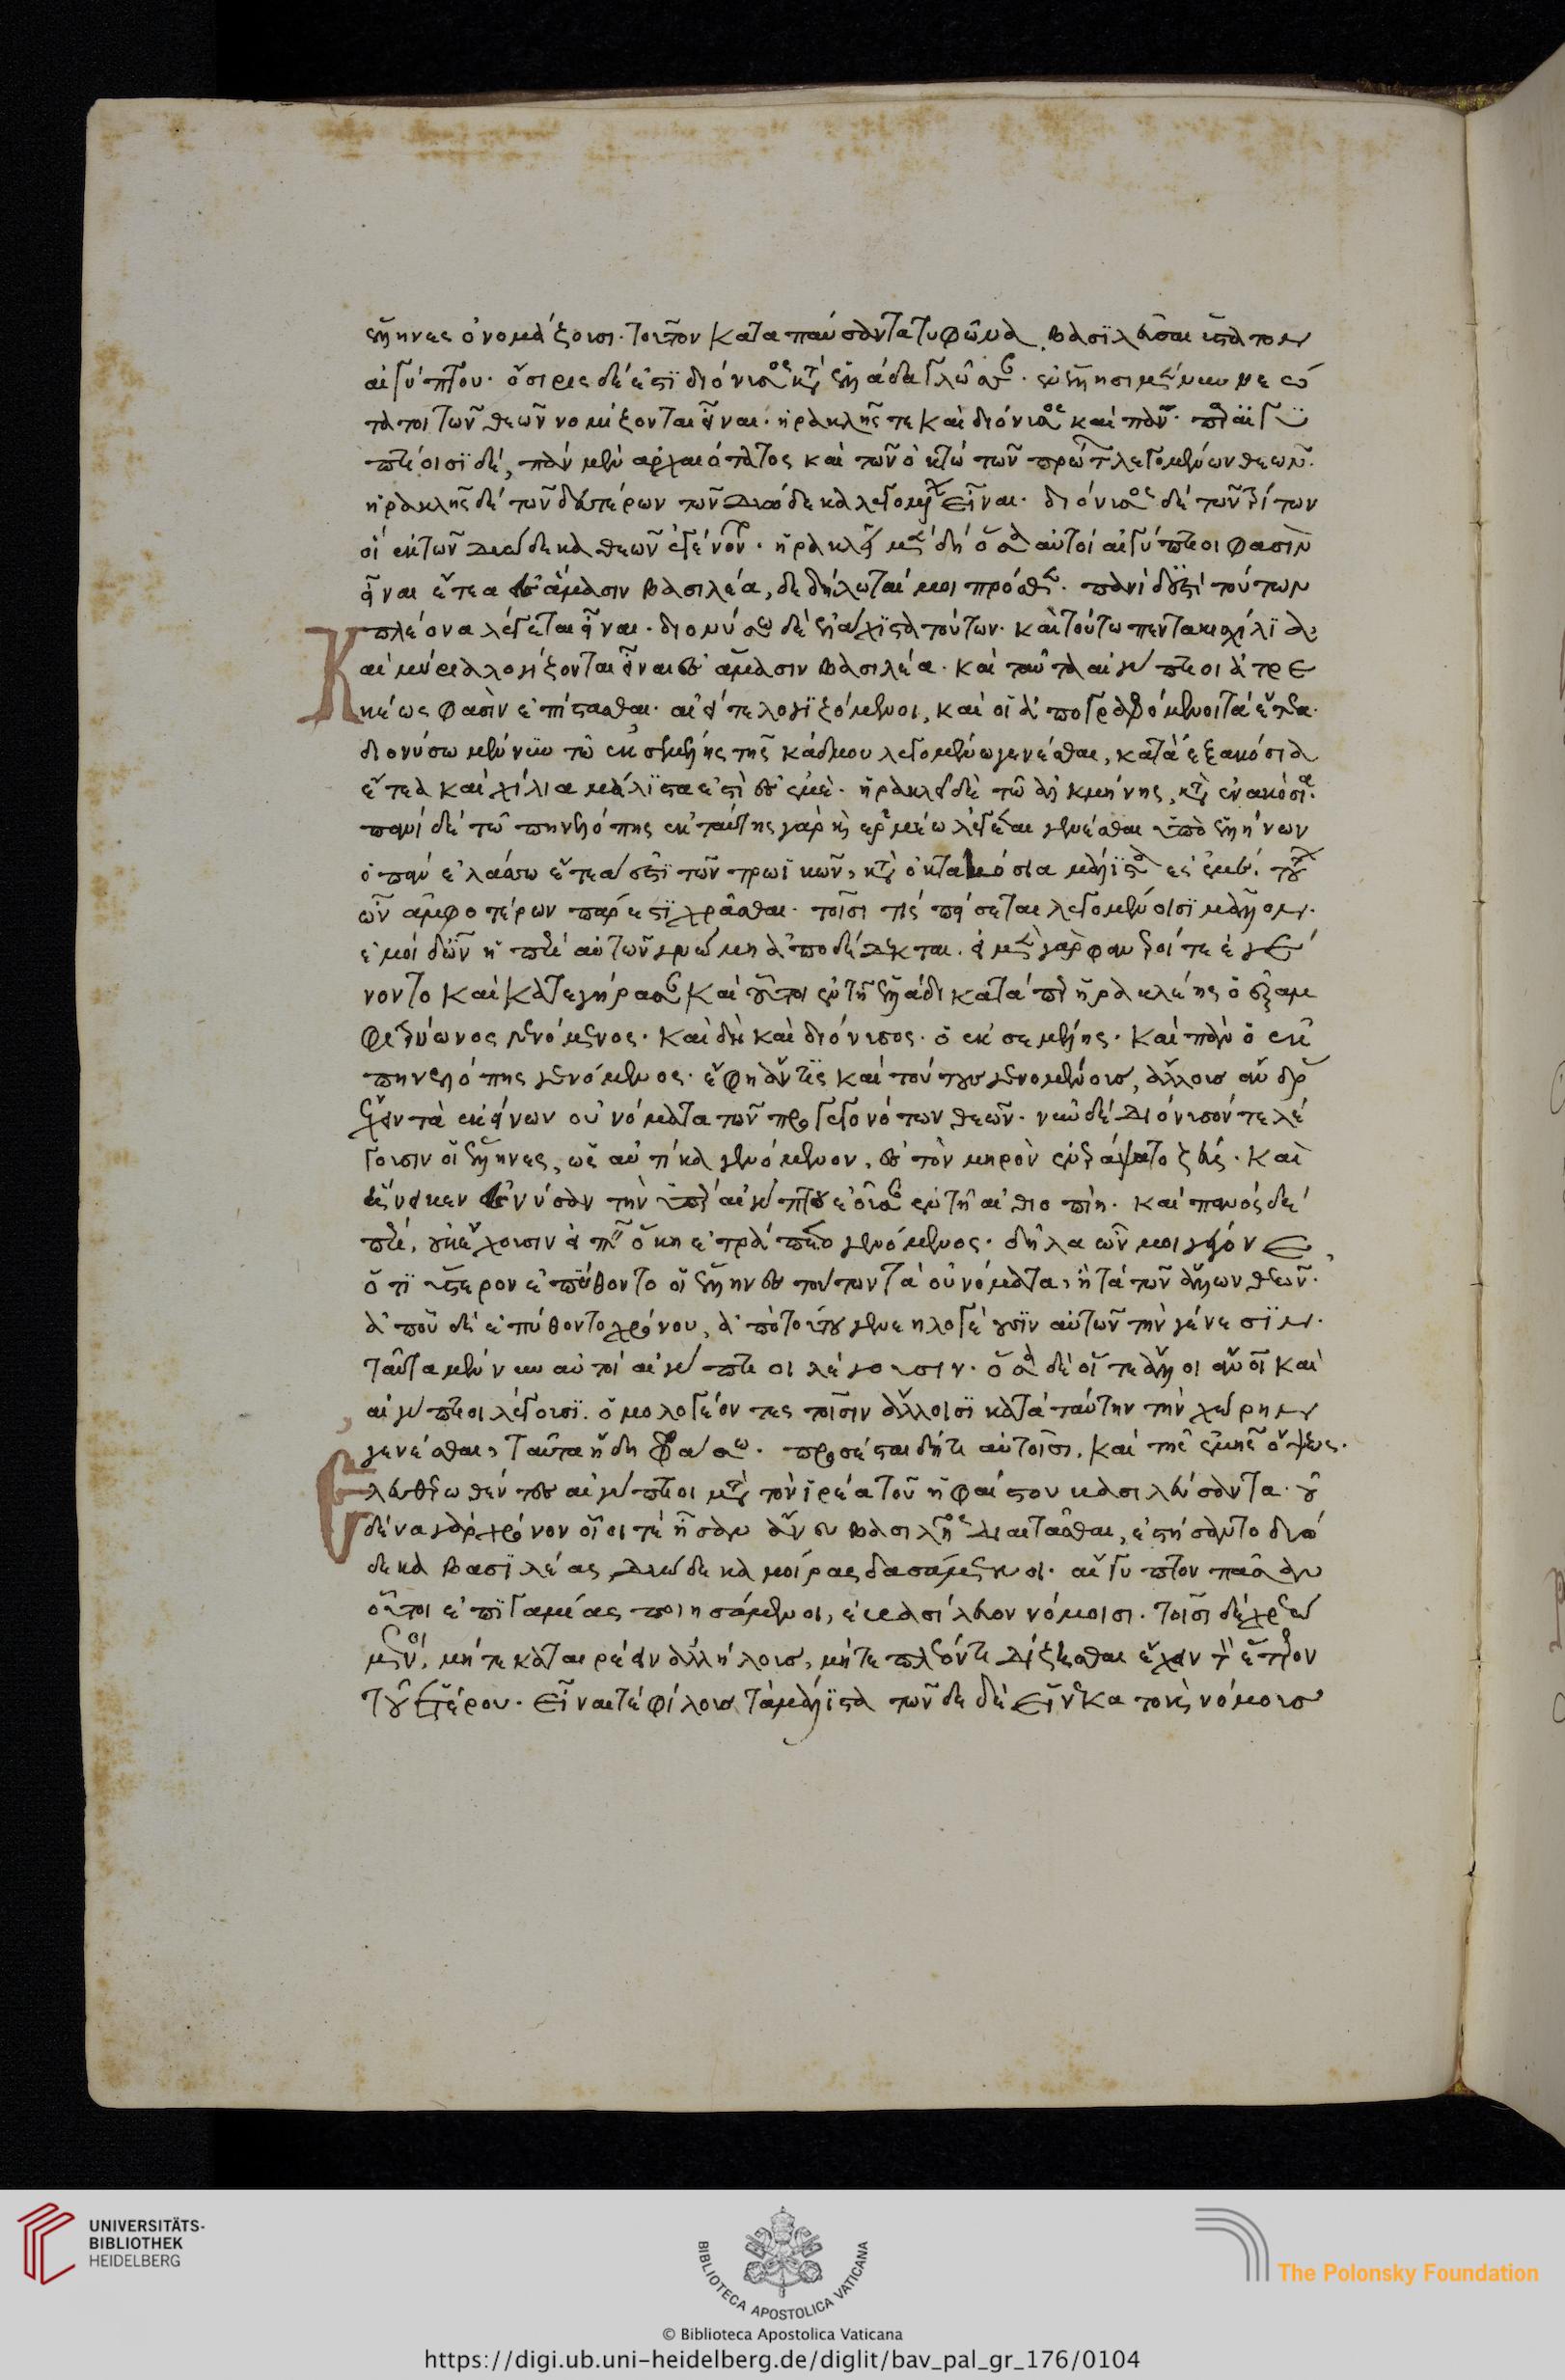 ἕλληνες ὀνομάζουσι· τοῦτον καταπαύσαντα τυφῶνα, βασιλεῦσαι ὕστατον
αἰγύπτου· ὄσιρις δέ ἐστϊ διόνυσος κατ' ἑλλάδα γλῶσσαν· ἐν ἕλλησι μέν νυν νεώ
τατοι τῶν θεῶν νομίζονται εἶναι· ἡρακλῆς τε καὶ διόνυσος καὶ πάν· παρ' αἰγυ
πτίοισϊ δέ, πὰν μὲν ἀρχαιότατος καὶ τῶν ὀκτὼ τῶν πρώτων λεγομένων θεῶν·
ἡρακλῆς δὲ τῶν δευτέρων τῶν δυώδεκα λεγομένων εἶναι· διόνυσος δὲ τῶν τρίτων
οἳ ἐκ τῶν δυώδεκα θεῶν ἐγένοντο· ἡρακλεῖ μὲν δὴ ὅσα αὐτοὶ αἰγύπτιοι φασὶν
εἶναι ἔτεα ἐς ἄμασιν βασιλέα, δεδήλωταί μοι πρόσθεν· πανὶ δὲ ἔτι τούτων
πλέονα λέγεται εἶναι· διονύσω δ' ἐλάχιστα τούτων· καὶ τούτω πεντακισχίλϊα
καὶ μύρια λογίζονται εἶναι ἐς ἄμασιν βασιλέα· καὶ ταῦτα αἰγύπτιοι ἀτρε
κέως φασὶν ἐπίστασθαι· αἰεί τε λογϊζόμενοι, καὶ αἰεὶ ἀπογραφόμενοι τὰ ἔτεα·
διονύσω μέν νυν τῶ ἐκ σεμέλης τῆς κάδμου λεγομένω γενέσθαι, κατὰ ἑξακόσια
ἔτεα καὶ χίλια μάλϊστα ἐστὶ ἐς ἐμέ· ἡρακλεῖ δὲ τῶ ἀλκμήνης, κατὰ ἐνακόσια·
πανὶ δὲ τῶ πηνελόπης ἐκ ταύτης γὰρ καὶ ἑρμέω λέγεται γενέσθαι ὑπὸ ἑλλήνων
ὁ πὰν ἐλάσσω ἔτεα ἐστϊ τῶν τρωϊκῶν, κατὰ ὀκτακόσια μάλϊστα ἐς ἐμέ· τούτων
ὦν ἀμφοτέρων πάρεστϊ χρᾶσθαι· τοῖσι τὶς πείσεται λεγομένοισϊ μᾶλλον·
ἐμοὶ δ' ὦν ἡ περὶ αὐτῶν γνώμη ἀποδέδεκται· εἰ μὲν γὰρ φανεροί τε ἐγέ
νοντο καὶ κατεγήρασαν καὶ οὗτοι ἐν τῆ ἑλλάδι κατάπερ ἡρακλέης ὁ ἐξ ἀμ
φιτρύωνος γενόμενος· καὶ δὴ καὶ διόνυσος· ὁ ἐκ σεμέλης· καὶ πὰν ὁ ἐκ
πηνελόπης γενόμενος· ἔφη ἄν τις καὶ τούτους γενομένους, ἄλλους ἄνδρας
ἔχειν τὰ ἐκείνων οὐνόματα τῶν προγεγονότων θεῶν· νῦν δὲ διόνυσόν τε λέ
γουσιν οἱ ἕλληνες, ὡς αὐτίκα γενόμενον, ἐς τὸν μηρὸν ἐνεράψατο ζεύς· καὶ
ἤνεικεν ἐς νύσαν τὴν ὑπὲρ αἰγύπτου ἐοῦσαν ἐν τῆ αἰθιοπίη· καὶ πανὸς δὲ
πέρι, οὐκ ἔχουσιν εἰπεῖν ὅκη ἐτράπετο γενόμενος· δῆλα ὦν μοι γέγονε
ὅτϊ ὕστερον ἐπύθοντο οἱ ἕλληνες τούτων τὰ οὐνόματα, ἢ τὰ τῶν ἄλλων θεῶν·
ἀπ' οὗ δὲ ἐπύθοντο χρόνου, ἀπὸ τούτου γενεηλογέουσϊν αὐτῶν τὴν γένεσϊν·
ταῦτα μέν νυν αὐτοὶ αἰγύπτιοι λέγουσιν· ὅσα δὲ οἵ τε ἄλλοι ἄνθρωποι καὶ
αἰγύπτιοι λέγουσϊ· ὁμολογέοντες τοῖσιν ἄλλοισϊ κατὰ ταύτην τὴν χώρην
γενέσθαι, ταῦτα ἤδη φράσω· προσέσται δέ τι αὐτοῖσι, καὶ τῆς ἐμῆς ὄψιος·
Ἐλευθερωθέντες αἰγύπτιοι μετὰ τὸν ἱρέα τοῦ ἡφαίστου βασιλεύσαντα· οὐ
δένα γὰρ χρόνον οἷοί τε ἦσαν ἄνευ βασιλῆος διαιτᾶσθαι, ἐστήσαντο δυώ
δεκα βασϊλέας, δυώδεκα μοίρας δασάμενοι· αἴγυπτον πᾶσαν
οὗτοι ἐπϊγαμίας ποιησάμενοι, ἐβασίλευον νόμοισι· τοῖσι δὲ χρεώ
μενοι, μήτε καταιρέειν ἀλλήλους, μήτε πλέον τι δίζησθαι ἔχειν τὸν ἕτερον
τοῦ ἑτέρου· εἶναί τε φίλους τὰ μάλϊστα τῶν δε δὲ εἵνεκα τοὺς νόμους
UNIVERSITÄTS-
BIBLIOTHEK
HEIDELBERG
BIBLIOTECA APOSTOLICA VATICANA
The Polonsky Foundation
© Biblioteca Apostolica Vaticana
https://digi.ub.uni-heidelberg.de/diglit/bav_pal_gr_176/0104